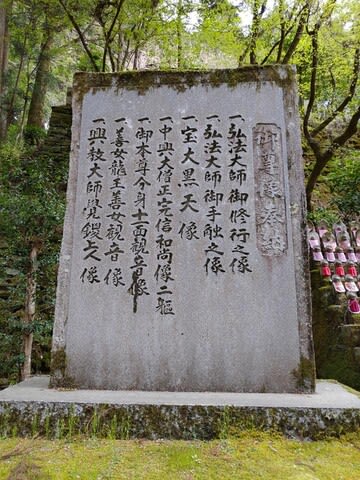 御尊像奉
一弘法大師御修行之像
一弘法大師御手触之像
一宝大黒天像
一中興大僧正完信和尚像二軀
一御本尊今身十一面観音像
一善女龍王善女観音像
一興教大師覺鑁上人像